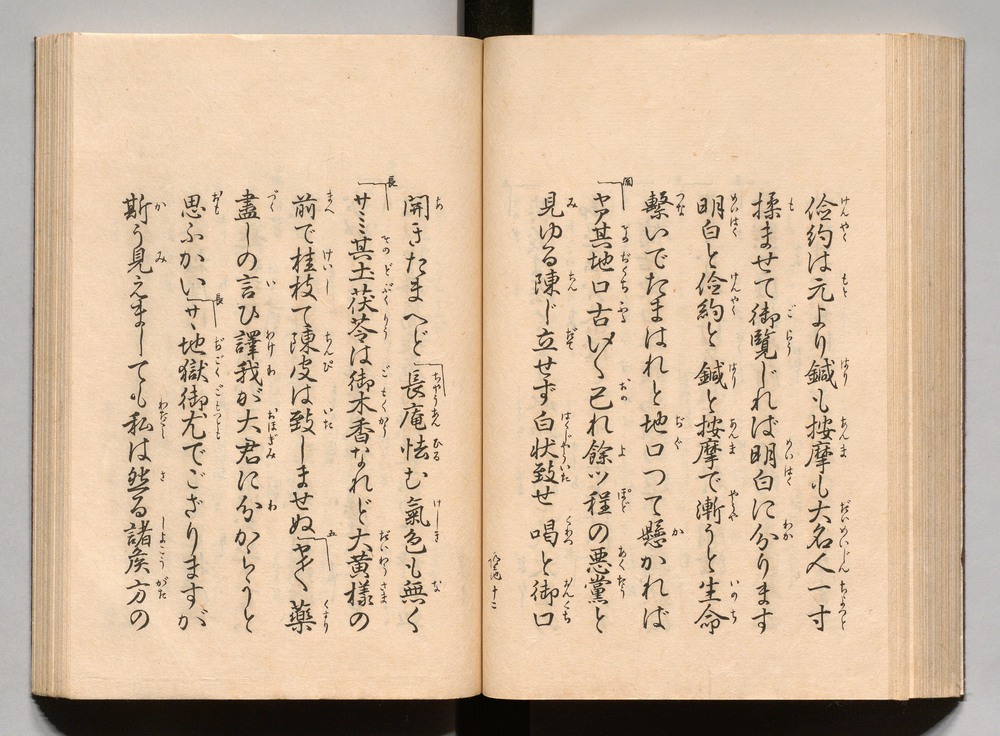 儉約は元より鍼も按摩も大名人一寸
揉ませて御覧じれば明白に分ります
明白と儉約と鍼と按摩で漸うと生命
繋いでたまはれと地口つて懸かれば
ヤア其地口古い〱己れ餘ッ程の悪黨と
見ゆる陳じ立せず白状致せ喝と御口
開きたまへど長庵怯む氣色も無く
サミ其土茯苓は御木香なれど大黄様の
前で桂枝て陳皮は致しませぬヤイ〱藥
盡しの言ひ譯我が大君に分からうと
思ふかいサヽ地獄御尤でござりますが
斯う見えましても私は然る諸侯方の